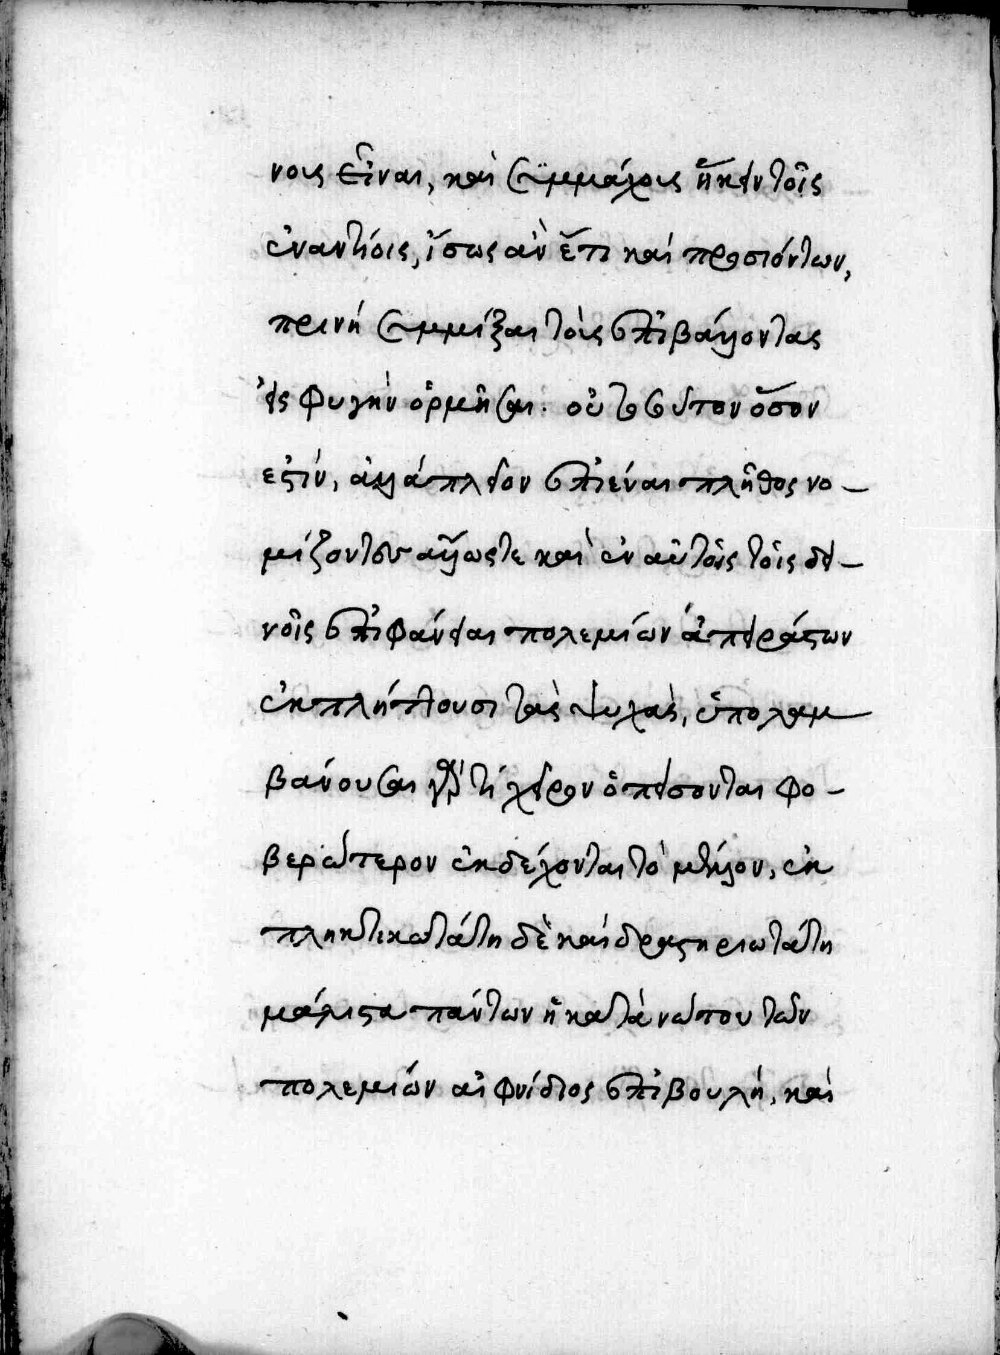 νοις εἶναι, καὶ συμμάχοις ἥκειν τοῖς
ἐναντίοις, ἴσως ἂν ἔτι καὶ προσιόντων,
πρινή συμμίξαι τοὺς ἐπιβάλλοντας
εἰς φυγὴν ὁρμῆσαι. οὐ τοσοῦτον ὅσον
εστίν, ἀλλά πλεῖον ἐπιέναι πλῆθος νο-
μίζοντες ἄλλωστε καὶ ἐν αὐτοῖς τοῖς δει-
νοῖς ἐπιφάνειαι πολεμίων ἀπειράστων
ἐκπλήττουσι τὰς ψυχὰς, ὑπολαμ
βάνουσαι γὰρ τί χεῖρον ὃ πείσονται φο-
βερώτερον ἐκδέχονται τὸ μέλλον, ἐκ
πληκτικωτάτη δὲ καὶ δραστηριωτάτη
μάλιστα πάντων ἡ κατὰ νώτου τῶν
πολεμίων αἰφνίδιος ἐπιβουλή, καὶ